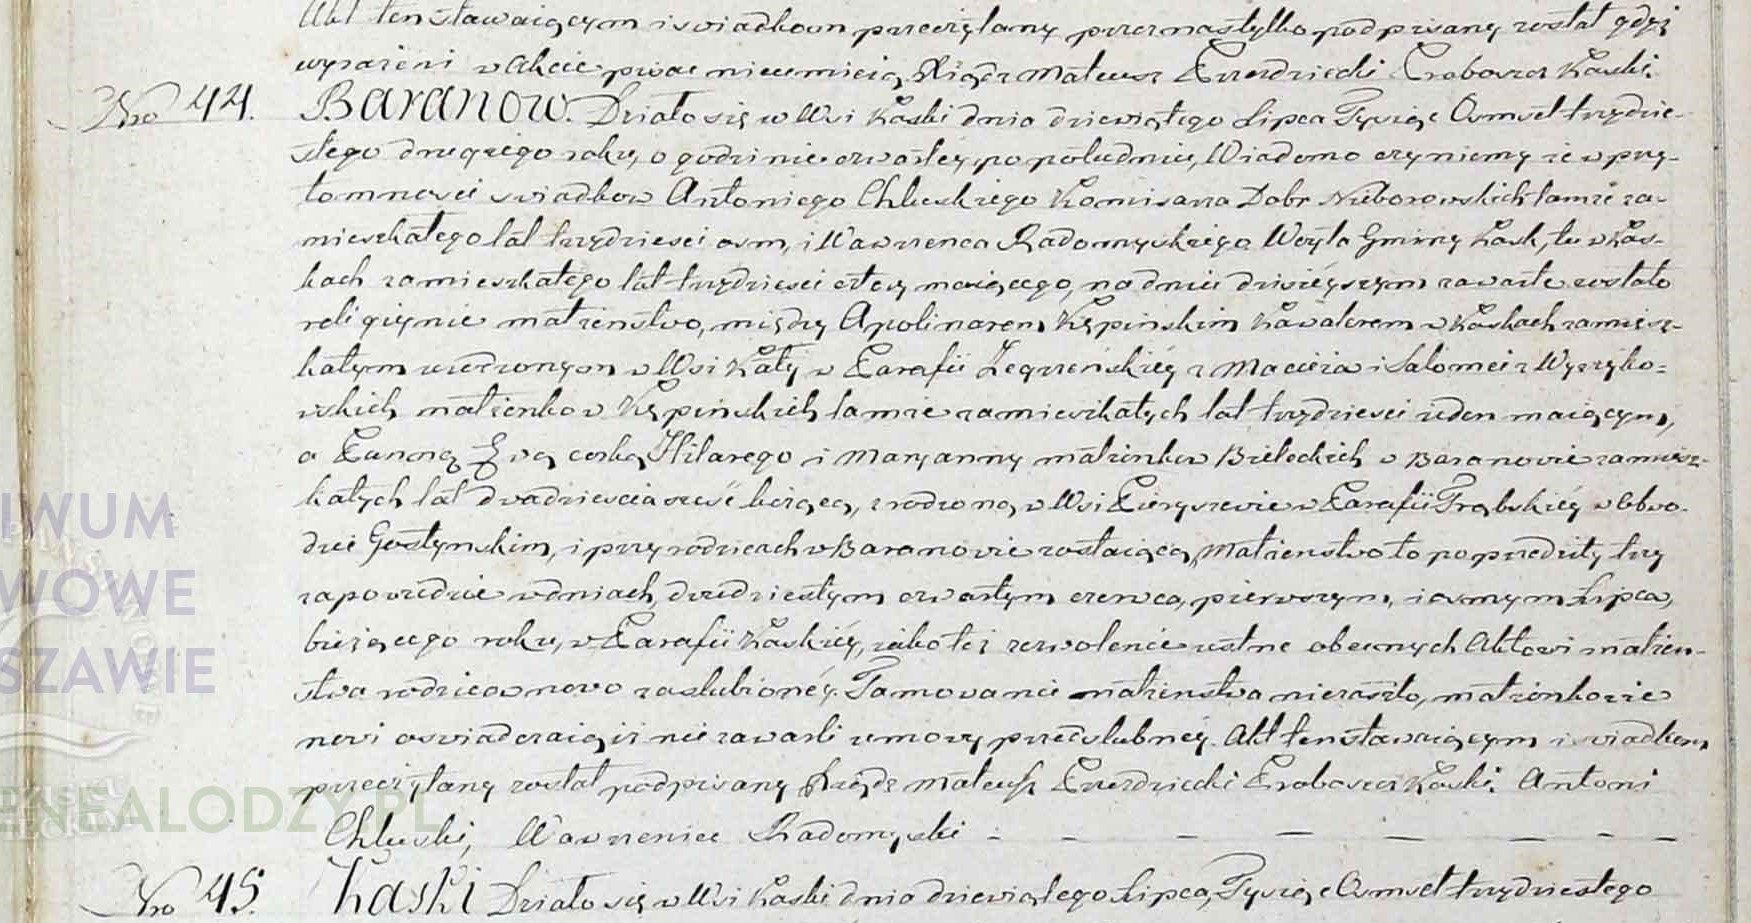 Akt ten stawaiącym i swiadkom przeczytany przez nas tylko podpisany został gdyż
wyrażeni w Akcie pisac nieumieią Xiądz Mateusz Proboszcz Kaski.
Nro 44. Baranow. Działo się w Wsi Kaski dnia dziewiątego Lipca Tysiąc Osmset trzydzie-
stego drugiego roku, o godzinie czwartey po południu, Wiadomo czyniemy że w przy-
tomnosci swiadkow Antoniego Chluskiego Komisarza Dobr Nieborowskich tamże za-
mieszkałego lat trzydziesci osm, i Wawrzenca Radomyskiego Woyta Gminy Kask, tu w Kas-
kach zamieszkałego lat trzydziesci cztery maiącego, na dniu dzisieyszym zawarte zostało
religiynie małzenstwo, między Apolinarem Kępinskim Kawalerem w Kaskach zamiesz-
kałym urodzonym w Wsi Kąty w Parafii Zegrzeńskiéy z Macieia i Salomei z Wyrzyko-
wskich małzenkow Kępinskich tamże zamieszkałych lat trzydziesci ieden maiącym,
a Panną Ewą corką Hilarego i Maryanny małzonkow Bieleckich w Baranowie zamiesz-
kałych lat dwadziescia szesć liczącą, zrodzoną w Wsi w Parafii Trąbskiéy w Obwo-
dzie Gostynskim, i przy rodzicach w Baranowie zostaiącą, Małzenstwo to poprzedziły trzy
zapowiedzie w dniach, dwudziestym czwartym czerwca, pierwszym, i osmym Lipca,
bieżącego roku, w Parafii Kaskiéy, iako też zezwolenie ustne obecnych Aktowi małzen-
stwa rodzicow nowo zaslubionéy. Tamowanie małzenstwa niezaszło, małzonkowie
nowi oswiadczaią iż nie zawarli umowy przedslubnéy. Akt ten stawaiącym i swiadkom
przeczytany został podpisany Xiądz Mateusz Proboszcz Kaski. Antoni
Chluski, Wawrzeniec Radomyski - - - - - - - -
Nro 45. Kaski Działo się w Wsi Kaski dnia dziewiątego Lipca, Tysiąc Osmset trzydziestego
IWUM
WOWE
SZAWIE
ENEALODZY.PL